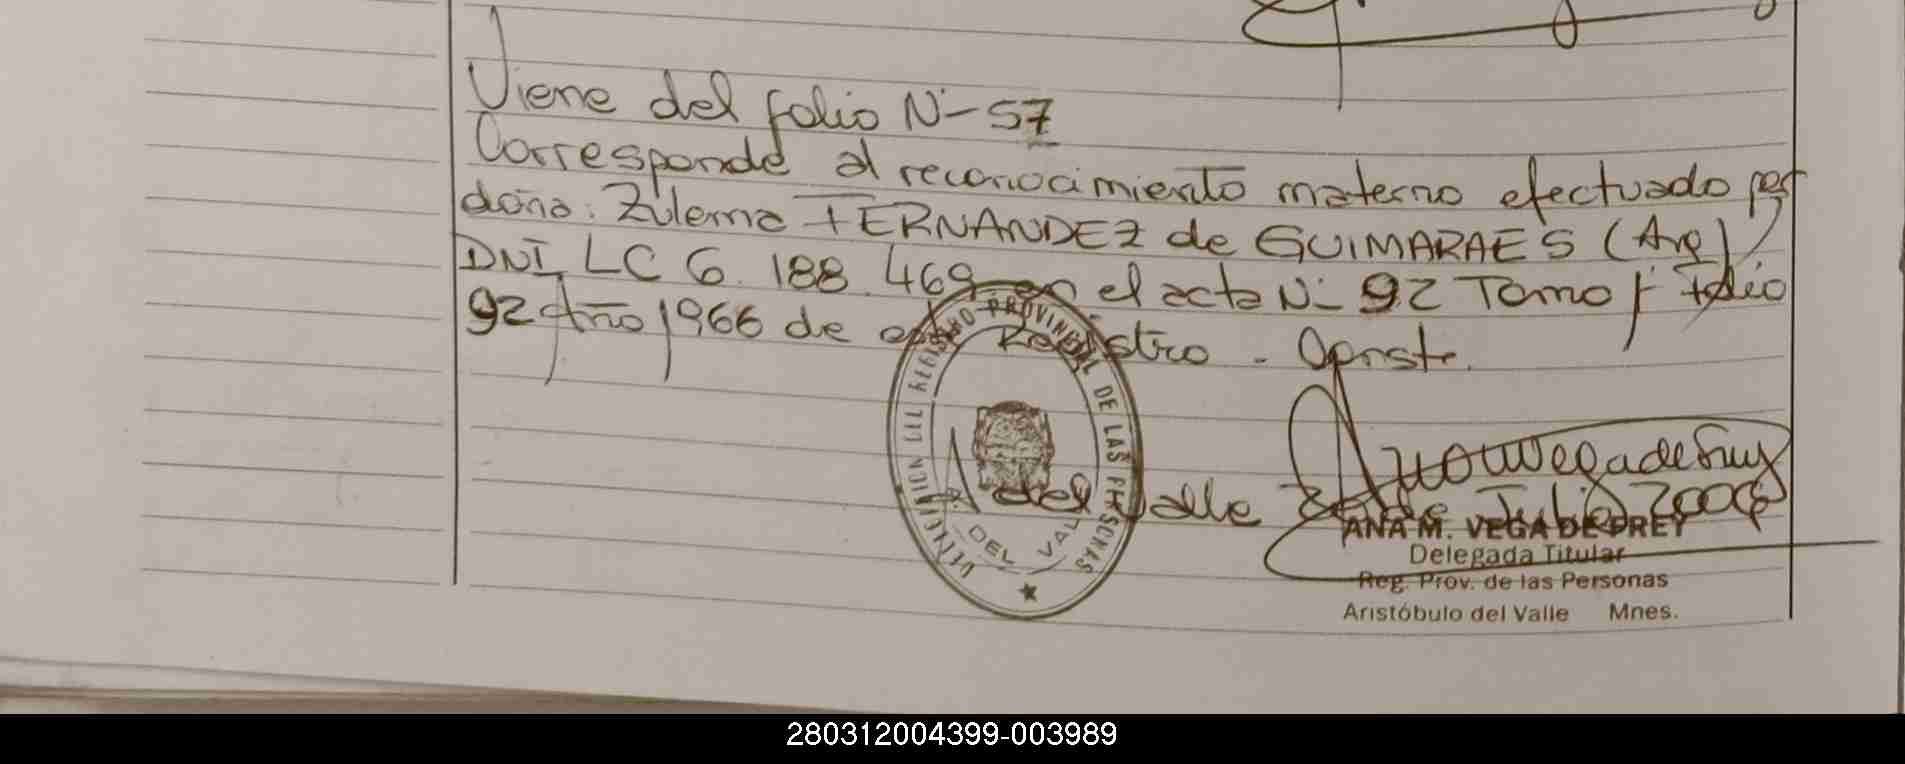 Viene del folio N- 57
Corresponde al reconocimiento materno efectuado por
doña: Zulema FERNANDEZ de GUIMARAES (Arg)
DNI, LC 6.188.469 en el acta N- 92 Tomo I Folio
92 Año 1966 de este Registro - Conste.
DELEGACION DEL REGISTRO PROVINCIAL DE LAS PERSONAS
A. DEL VALLE
A. del Valle de Julio 2008
ANA M. VEGA DE PREY
Delegada Titular
Reg. Prov. de las Personas
Aristóbulo del Valle Mnes.
280312004399-003989